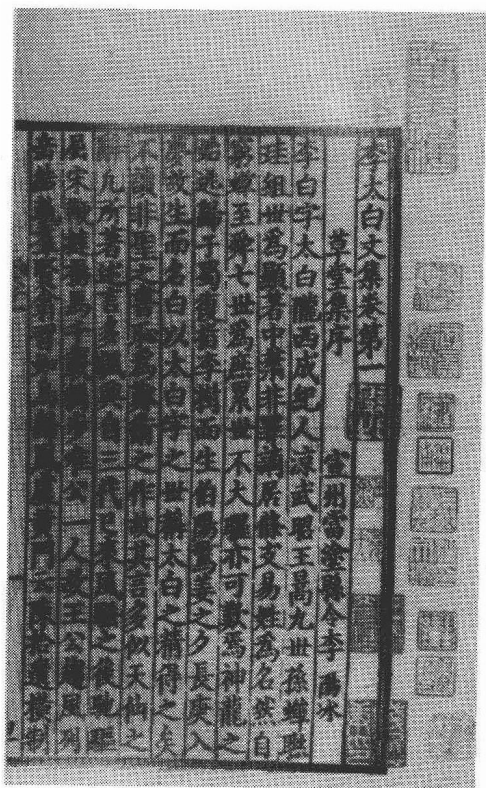 李太白文集卷第一
草堂集序 宣州當塗縣令李陽冰
李白字太白隴西成紀人涼武昭王暠九世孫蟬聯
珪組世為顯著中葉非罪謫居條支易姓為名然自
窮蟬至舜七世為庶累世不大曜亦可歎焉神龍之
始逃歸于蜀復指李樹而生伯陽驚姜之夕長庚入
夢故生而名白以太白字之世稱太白之精得之矣
不讀非聖之書恥為鄭衛之作故其言多似天仙之
辭凡所著述言多諷興自三代已來風騷之後馳驅
屈宋鞭撻揚馬千載獨步唯公一人故王公趨風列
岳結軌群賢翕習如鳥歸鳳盧黃門云陳拾遺橫制